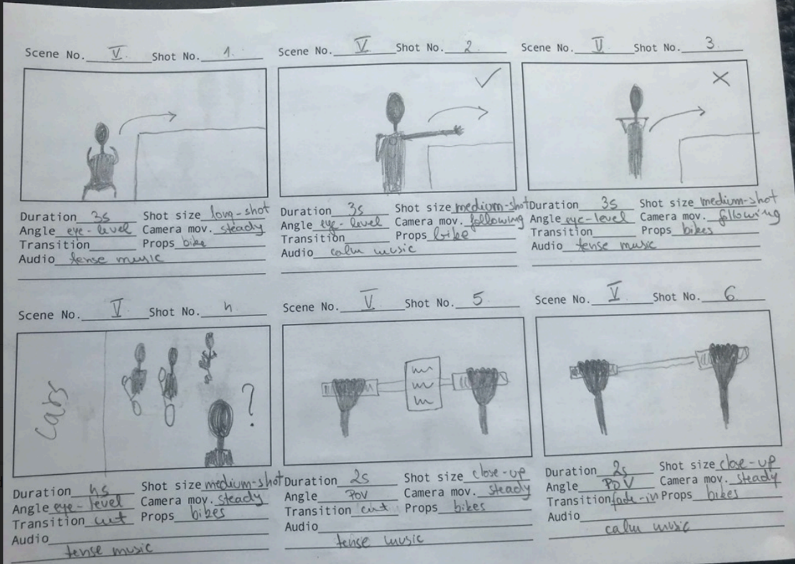 Scene No. V Shot No. 1
Scene No. V Shot No. 2
Scene No. V Shot No. 3
Duration 3s Shot size long-shot
Angle eye-level Camera mov. steady
Transition Props bike
Audio tense music
Duration 3s Shot size medium-shot
Angle eye-level Camera mov. following
Transition Props bike
Audio calm music
Duration 3s Shot size medium-shot
Angle eye-level Camera mov. following
Transition Props bikes
Audio tense music
Scene No. V Shot No. 4
Scene No. V Shot No. 5
Scene No. V Shot No. 6
cars
?
Duration 4s Shot size medium-shot
Angle eye-level Camera mov. steady
Transition cut Props bikes
Audio
tense music
Duration 2s Shot size close-up
Angle POV Camera mov. steady
Transition cut Props bikes
Audio
tense music
Duration 2s Shot size close-up
Angle POV Camera mov. steady
Transition fade-in Props bikes
Audio
calm music